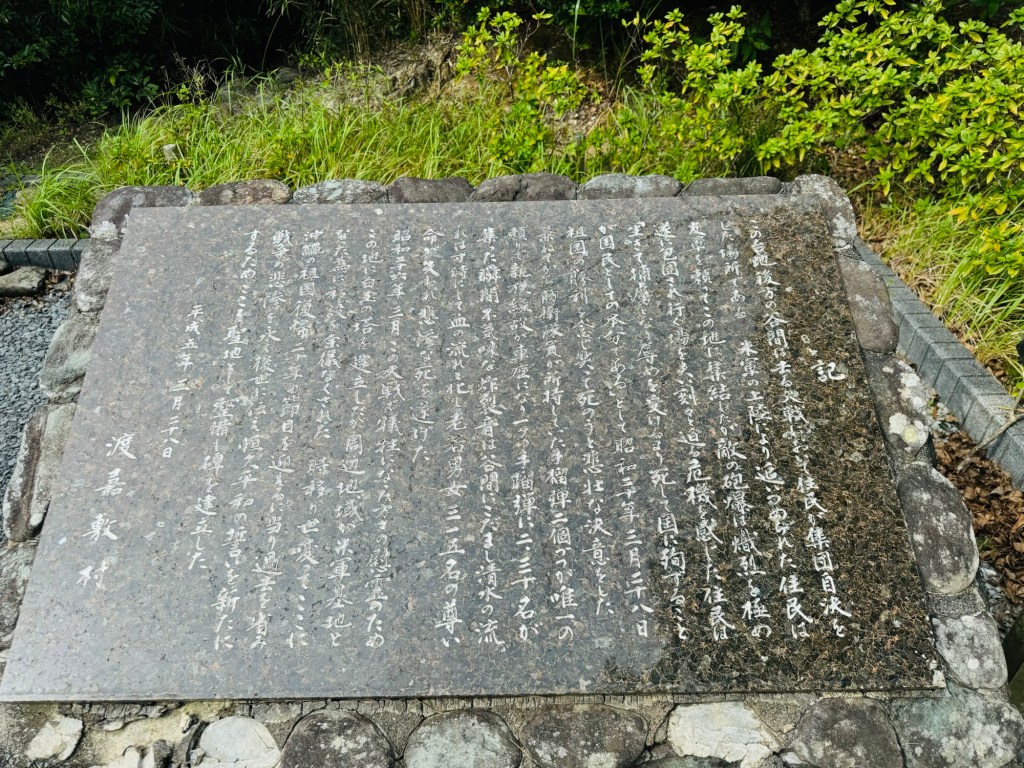 記
この台地後方の谷間は去る大戦において住民が集団自決を
した場所である 米軍の上陸により追いつめられた住民は
友軍を頼ってこの地に集結したが敵の砲爆は熾烈を極め
遂に包囲され行く場を失い刻々と迫る危機を感じた住民は
生きて捕虜となり辱めを受けるより死して国に殉ずること
が国民としての本分であるとして昭和二十年三月二十八日
祖国の勝利を念じ笑って死のうと悲壮な決意をした
兼ねてから防衛隊員が所持した手榴弾二個づつが唯一の
頼りで親族縁故が車座になり一つの手榴弾に二、三十名が
集った瞬間不気味な炸裂音は谷間にこだまし清水の流
れは寸時にして血の流れと化し老若男女三一五名の尊い
命が失われ悲惨な死を遂げた
昭和二六年三月この大戦で犠牲になった方々の慰霊のため
この地に白玉の塔を建立したが周辺地域が米軍基地と
なった為移設を余儀なくされた 時移り世変ってここに
沖縄の祖国復帰二十年の節目を迎えるに当り過去を省み
戦争の悲惨を永く後世に伝え恒久平和の誓いを新たに
するためここを聖地として整備し碑を建立した
平成五年三月二八日
渡嘉敷村